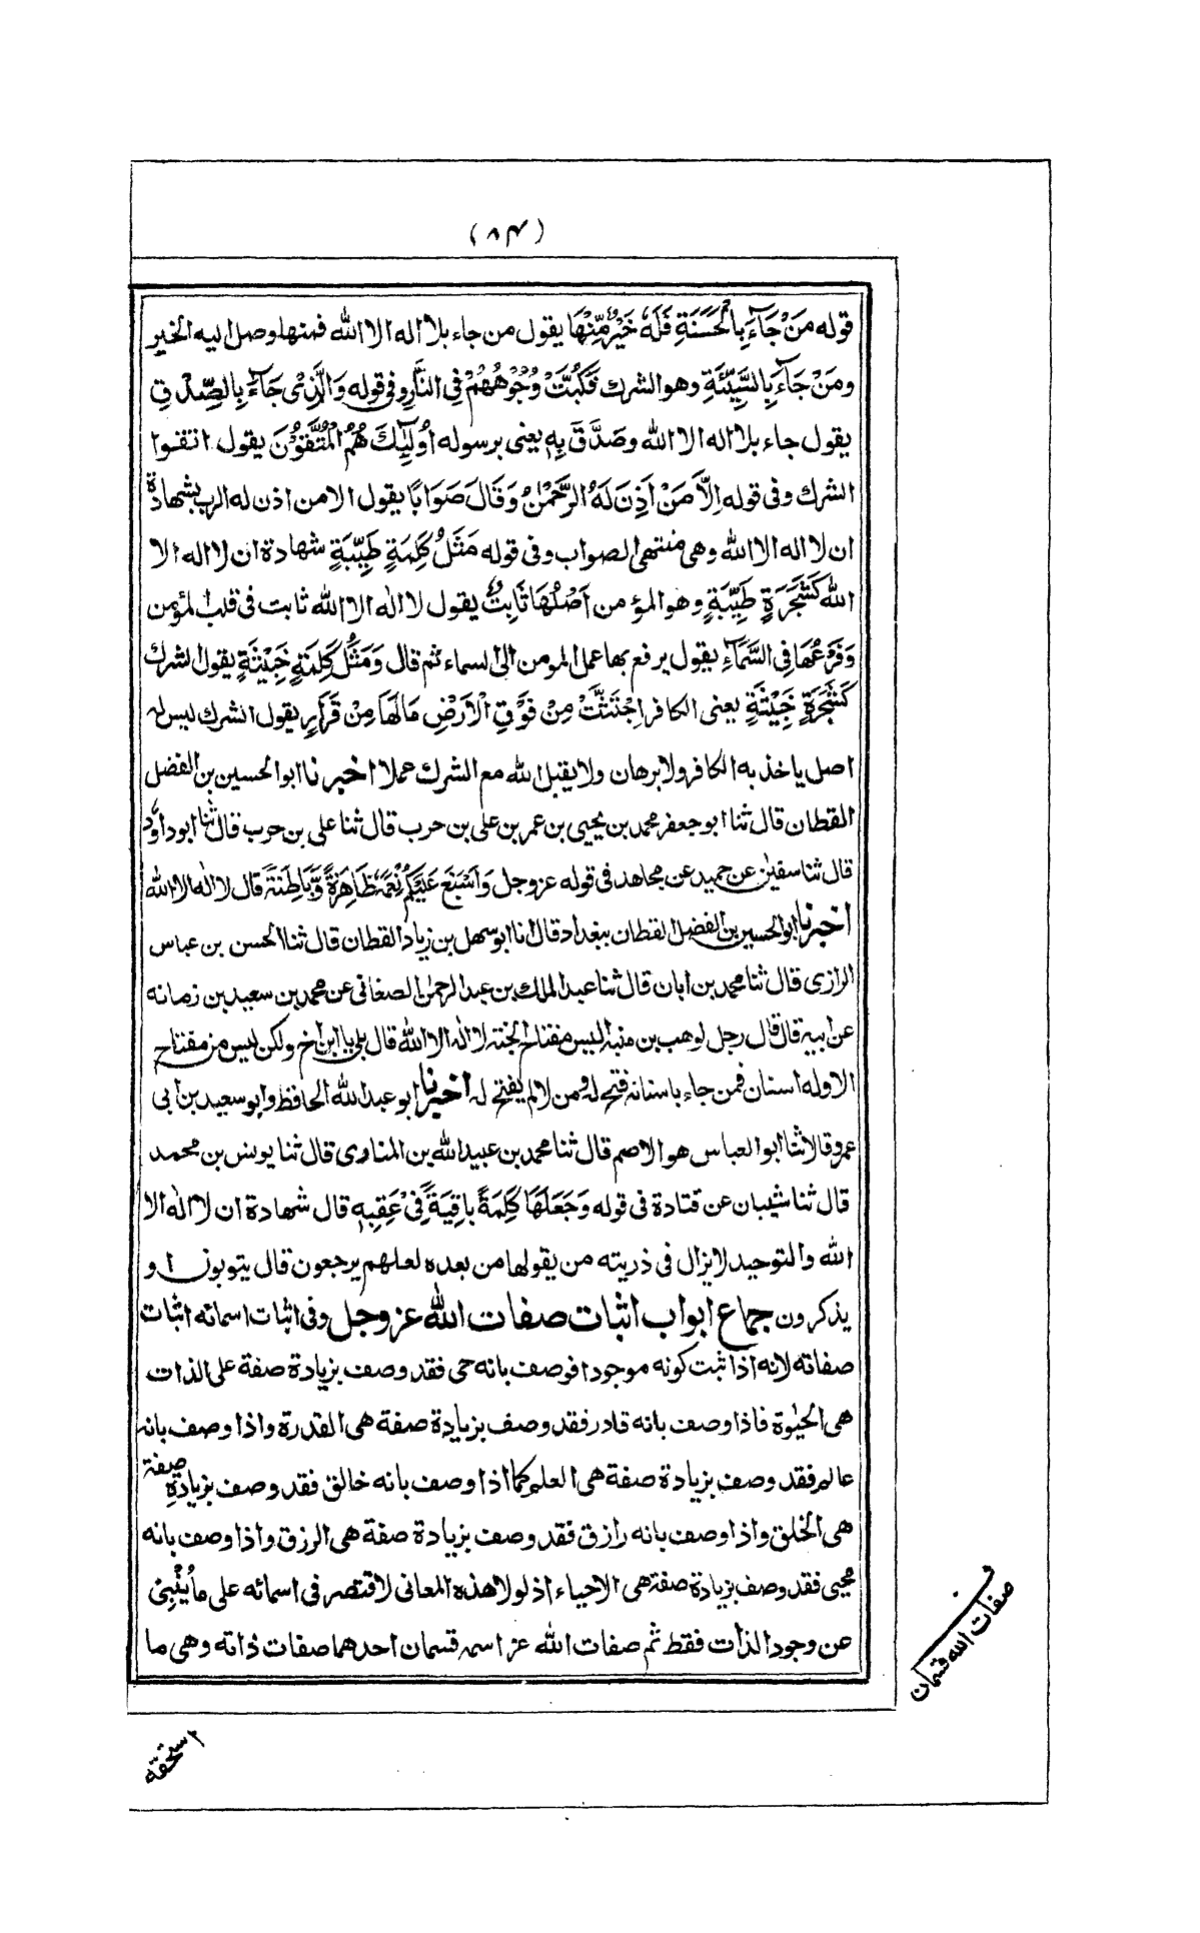 (۸۴)
قوله مَنْ جَآءَ بِالْحَسَنَةِ فَلَهٗ خَيْرٌ مِّنْهَا يقول من جاء بلا اله الا الله فمنها وصل اليه الخير
ومَنْ جَآءَ بِالسَّيِّئَةِ وهو الشرك فَكُبَّتْ وُجُوْهُهُمْ فِى النَّارِ وفى قوله وَالَّذِىْ جَآءَ بِالصِّدْقِ
يقول جاء بلا اله الا الله وصَدَّقَ بِهٖ يعنى برسوله اُولٰٓئِكَ هُمُ الْمُتَّقُوْنَ يقول اتقوا
الشرك وفى قوله اِلَّا مَنْ اَذِنَ لَهُ الرَّحْمٰنُ وَقَالَ صَوَابًا يقول الا من اذن له الرب بشهادة
ان لا اله الا الله وهى منتهى الصواب وفى قوله مَثَلُ كَلِمَةٍ طَيِّبَةٍ شهادة ان لا اله الا
الله كَشَجَرَةٍ طَيِّبَةٍ وهو المؤمن اَصْلُهَا ثَابِتٌ يقول لا اله الا الله ثابت فى قلب المؤمن
وَفَرْعُهَا فِى السَّمَآءِ يقول يرفع بها عمل المومن الى السماء ثم قال وَمَثَلُ كَلِمَةٍ خَبِيْثَةٍ يقول الشرك
كَشَجَرَةٍ خَبِيْثَةٍ يعنى الكافر اِجْتُثَّتْ مِنْ فَوْقِ الْاَرْضِ مَا لَهَا مِنْ قَرَارٍ يقول الشرك ليس له
اصل ياخذ به الكافر ولا برهان ولا يقبل الله مع الشرك عملا اخبرنا ابو الحسين بن الفضل
القطان قال ثنا ابو جعفر محمد بن يحيى بن عمر بن على بن حرب قال ثنا على بن حرب قال ثنا ابو داود
قال ثنا سفيٰن عن حميد عن مجاهد فى قوله عز وجل وَاَسْبَغَ عَلَيْكُمْ نِعَمَهٗ ظَاهِرَةً وَّبَاطِنَةً قال لا اله الا الله
اخبرنا ابو الحسين بن الفضل القطان ببغداد قال انا ابو سهل بن زياد القطان قال ثنا الحسن بن عباس
الرازى قال ثنا محمد بن ابان قال ثنا عبد الملك بن عبد الرحمٰن الصغانى عن محمد بن سعيد بن زمانه
عن ابيه قال قال رجل لوهب بن منبه اليس مفتاح الجنة لا اله الا الله قال بلى يا ابن اخ ولكن ليس من مفتاح
الا وله اسنان فمن جاء باسنانه فتح له ومن لا لم يفتح له اخبرنا ابو عبد الله الحافظ وابو سعيد بن ابى
عمرو قالا ثنا ابو العباس هو الاصم قال ثنا محمد بن عبيد الله بن المناوى قال ثنا يونس بن محمد
قال ثنا شيبان عن قتادة فى قوله وَجَعَلَهَا كَلِمَةً بَاقِيَةً فِىْ عَقِبِهٖ قال شهادة ان لا اله الا
الله والتوحيد لا يزال فى ذريته من يقولها من بعده لعلهم يرجعون قال يتوبون او
يذكرون جماع ابواب اثبات صفات الله عز وجل وفى اثبات اسمائه اثبات
صفاته لانه اذا ثبت كونه موجودا فوصف بانه حى فقد وصف بزيادة صفة على الذات
هى الحيٰوة فاذا وصف بانه قادر فقد وصف بزيادة صفة هى القدرة واذا وصف بانه
عالم فقد وصف بزيادة صفة هى العلم كما اذا وصف بانه خالق فقد وصف بزيادة صفة
هى الخلق واذا وصف بانه رازق فقد وصف بزيادة صفة هى الرزق واذا وصف بانه
محيى فقد وصف بزيادة صفة هى الاحياء اذ لولا هذه المعانى لاقتصر فى اسمائه على ما يُنْبِئ
عن وجود الذات فقط ثم صفات الله عز اسمه قسمان احدهما صفات ذاته وهى ما
ف
صفات الله قسمان
استحقه